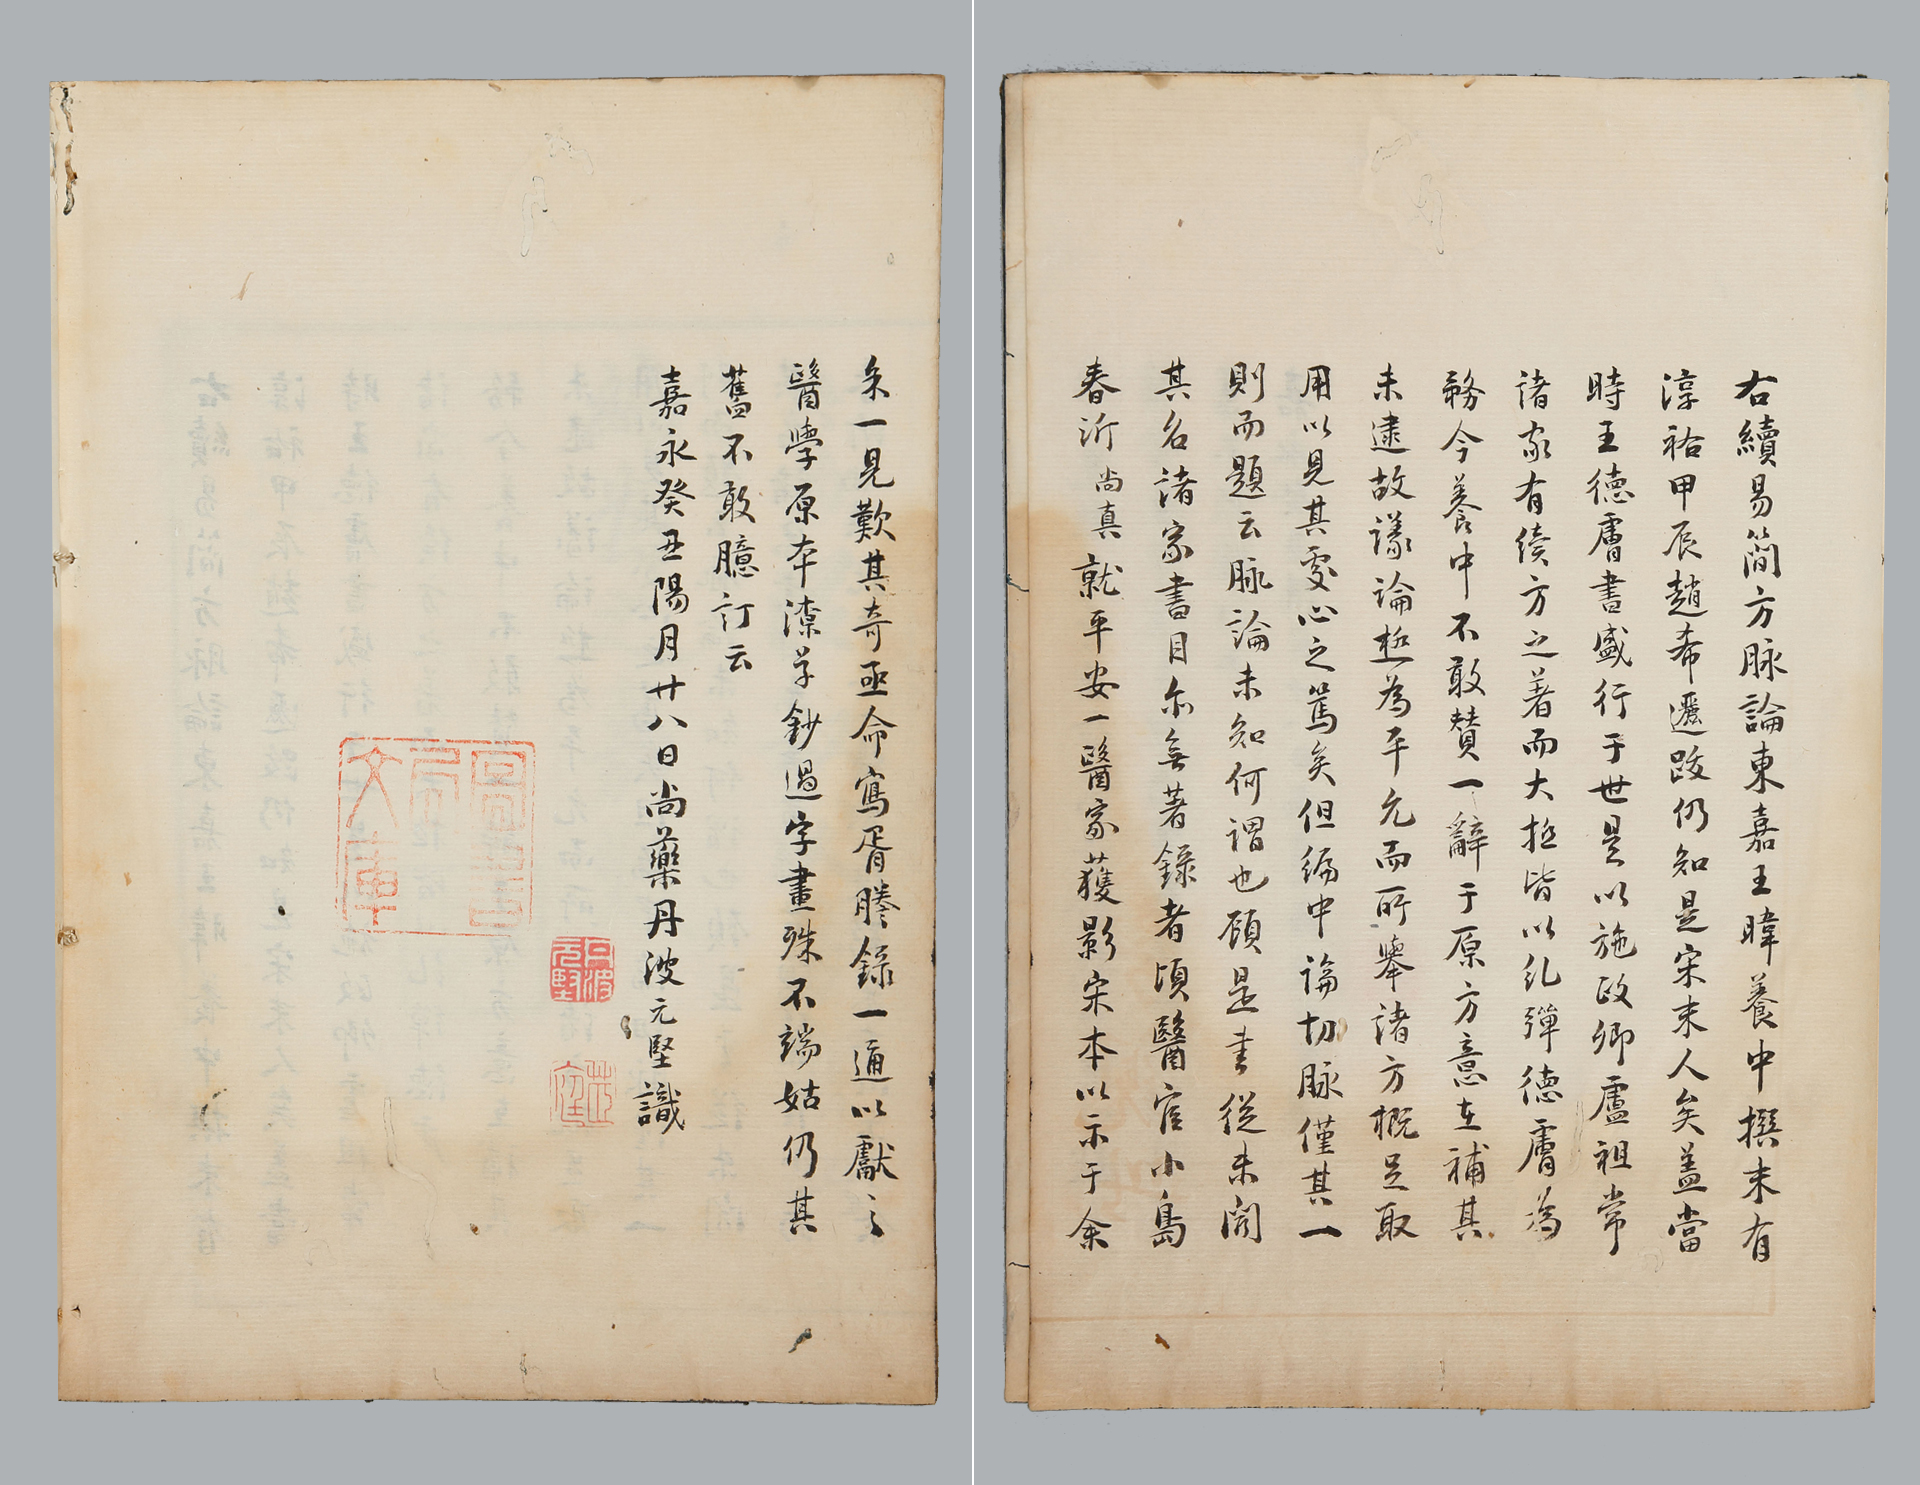 右續易簡方脉論東嘉王暐養中撰末有
淳祐甲辰趙希邐跋仍知是宋末人矣盖當
時王德膚書盛行于世是以施政卿盧祖常
諸家有續方之著而大抵皆以糺彈德膚為
務今養中不敢賛一辭于原方意在補其
未逮故議論極為平允而所舉諸方概足取
用以見其處心之篤矣但編中論切脉僅其一
則而題云脉論未知何謂也顧是書從未聞
其名諸家書目亦無著錄者頃醫官小島
春沂尚真就平安一醫家獲影宋本以示于余
余一見歎其奇亟命寫胥謄錄一通以獻之
醫學原本潦草鈔過字畫殊不端姑仍其
舊不敢臆訂云
嘉永癸丑陽月廿八日尚藥丹波元堅識
丹波元堅
茝庭
文庫